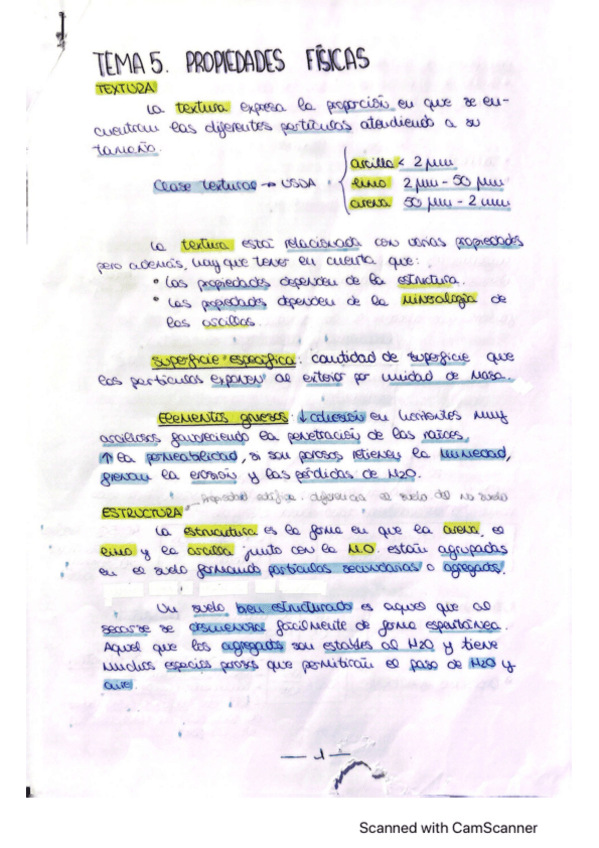 TEMA 5. PROPIEDADES FÍSICAS
TEXTURA
La textura expresa la proporción en que se en-
cuentran las diferentes partículas atendiendo a su
tamaño.
arcilla < 2 μm
Clase textural → USDA limo 2 μm - 50 μm
arena 50 μm - 2 mm
La textura está relacionada con varias propiedades
pero además, hay que tener en cuenta que:
• Las propiedades dependen de la estructura.
• Las propiedades dependen de la mineralogía de
las arcillas.
Superficie específica: cantidad de superficie que
las partículas exponen al exterior por unidad de masa.
Elementos gruesos: ↓ cohesión en horizontes muy
arcillosos favoreciendo la penetración de las raíces,
↑ la permeabilidad, si son porosos retienen la humedad,
frenan la erosión y las pérdidas de H2O.
Propiedad edáfica. diferencia el suelo del no suelo
ESTRUCTURA
La estructura es la forma en que la arena, el
limo y la arcilla junto con la M.O. están agrupadas
en el suelo formando partículas secundarias o agregados.
Un suelo bien estructurado es aquel que al
secarse se desmenuza fácilmente de forma espontánea.
Aquel que los agregados son estables al H2O y tiene
muchos espacios porosos que permitirán el paso de H2O y
aire.
- 1 -
Scanned with CamScanner